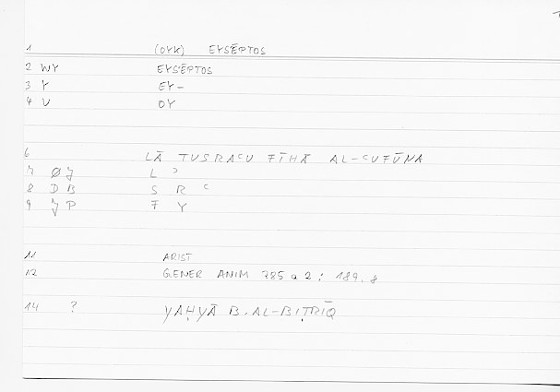 1 (OYK) EYSĒPTOS
2 WY EYSĒPTOS
3 Y EY-
4 U OY
6 LĀ TUSRAʿU FĪHĀ AL-ʿUFŪNA
7 ØJ L ʾ
8 DB S R ʿ
9 JP F Y
11 ARIST
12 GENER ANIM 785 a 2 ; 189.8
14 ? YAḤYĀ B. AL-BIṬRĪQ